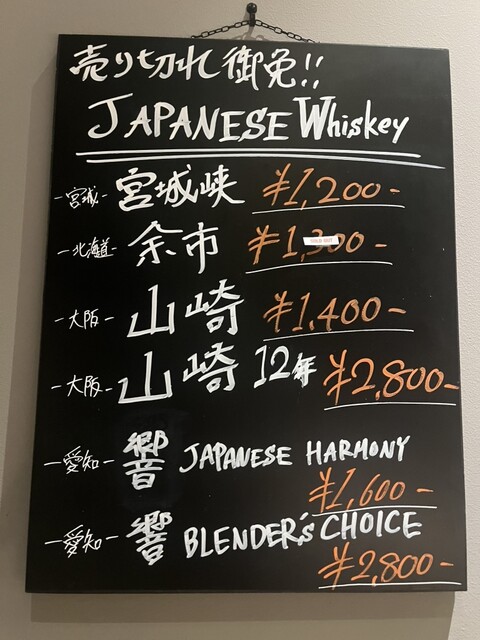 売り切れ御免!!
JAPANESE Whiskey
-宮城- 宮城峡 ¥1,200-
-北海道- 余市 ¥1,300-
-大阪- 山崎 ¥1,400-
-大阪- 山崎 12年 ¥2,800-
-愛知- 響 JAPANESE HARMONY
¥1,600-
-愛知- 響 BLENDER'S CHOICE
¥2,800-